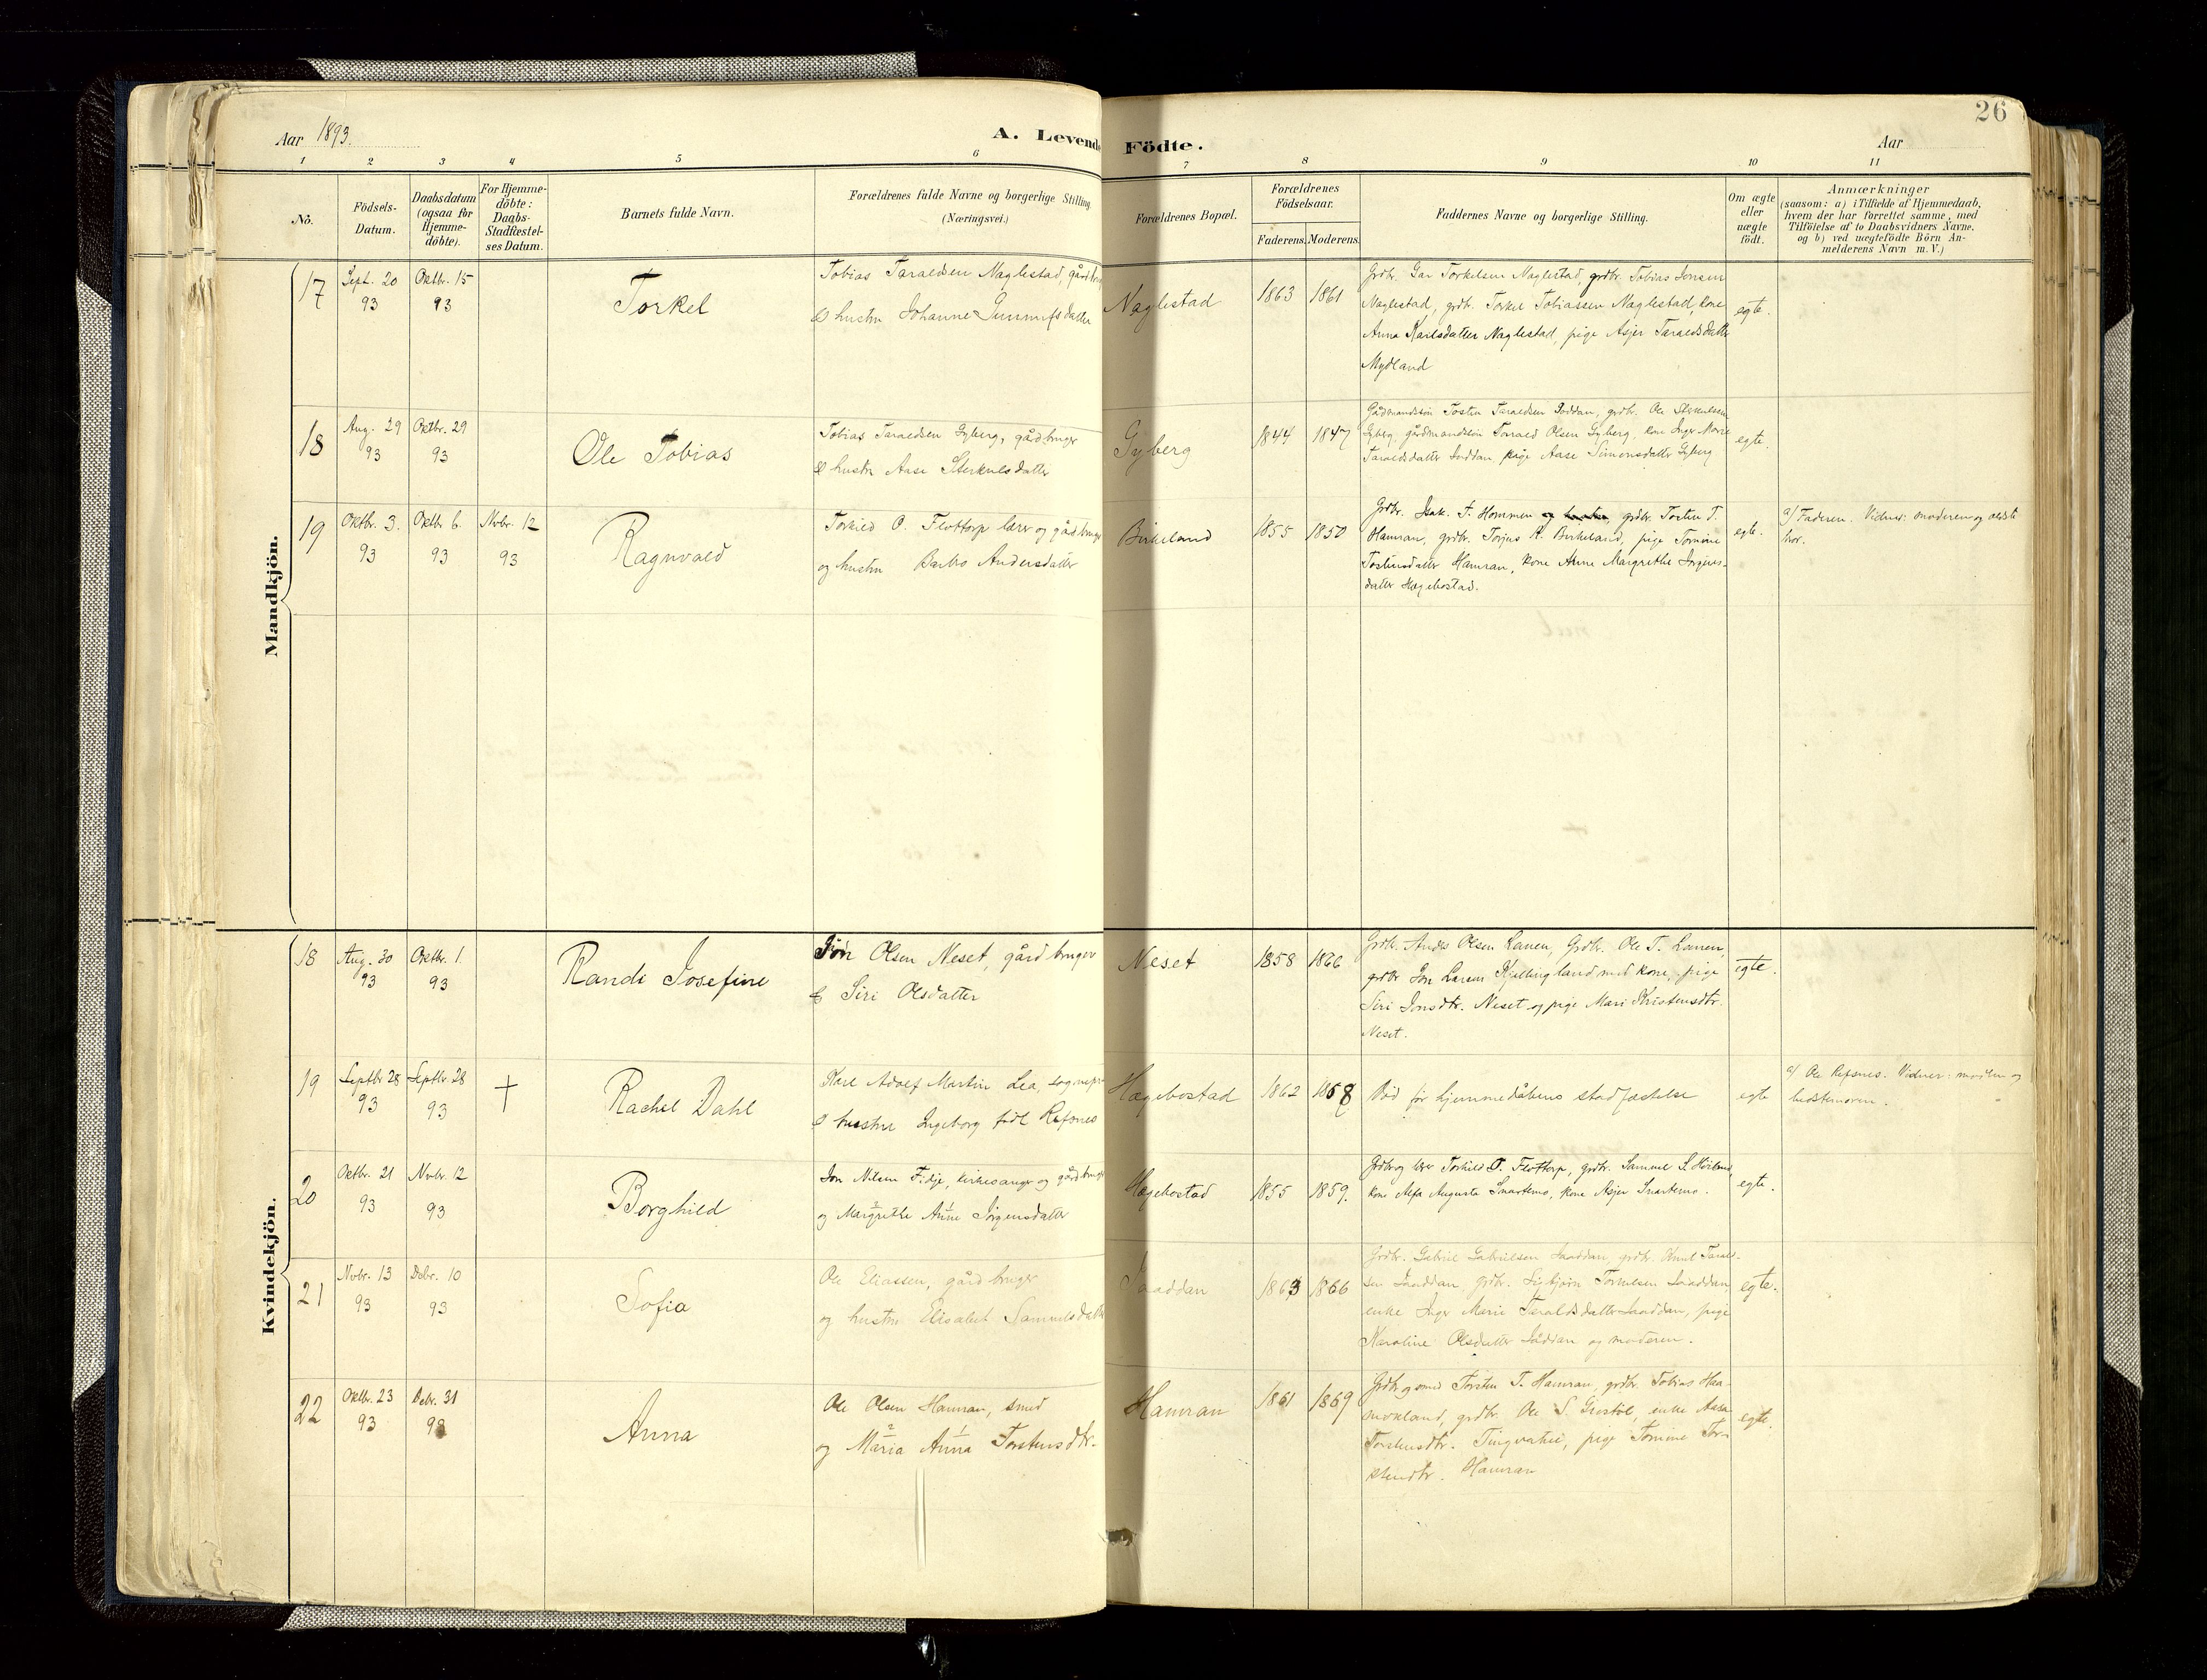 26
Aar 1893.
A. Levende Födte.
Aar
1 2 3 4 5 6 7 8 9 10 11
No.
Födsels-
Datum.
Daabsdatum
(ogsaa for
Hjemme-
döbte).
For Hjemme-
döbte:
Daabs-
Stadfæstel-
ses Datum.
Barnets fulde Navn.
Forældrenes fulde Navne og borgerlige Stilling
(Næringsvei.)
Forældrenes Bopæl.
Forældrenes
Födselsaar.
Faderens. Moderens.
Faddernes Navne og borgerlige Stilling.
Om ægte
eller
uægte
födt.
Anmærkninger
(saasom: a) i Tilfælde af Hjemmedaab,
hvem der har forrettet samme, med
Tilföielse af to Daabsvidners Navne,
og b) ved uægtefödte Börn An-
melderens Navn m. V.)
Mandkjön.
17
Sept. 20
93
Oktbr. 15
93
Torkel
Tobias Taraldsen Naglestad,
& hustru Johanne
Naglestad
1863 1861
Grdbr. Torkelsen Naglestad, grdbr. Tobias Jonsen
Naglestad, grdb. Torkel Tobiassen Naglestad, kone
Anna Naglestad, pige Asjer Taraldsdatter
Mydland
egte.
18
Aug. 29
93
Oktbr. 29
93
Ole Tobias
Tobias Taraldsen Gyberg, gårdbruger
& hustru Aase
Gyberg
1844 1847
Gårdmandssön Tosten Taraldsen grdbr. Ole
Gyberg, gårdmandssön Tarald Olsen Gyberg, kone Inger Marie
Taraldsdatter pige Aase Simonsdatter Gyberg
egte.
19
Oktbr. 3.
93
Oktbr 6.
93
Nvbr. 12
93
Ragnvald
Torkild O. Flottorp lærer og gårdbruger
og hustru Barbro Andersdatter
Birkeland
1855 1850
Grdbr. Isak. T. Hommen grdbr. Tosten T.
Hamran, grdbr. Torjus A. Birkeland, pige Tomine
Tostensdatter Hamran, kone Anne Margrethe Jörgens-
datter Hægebostad.
egte.
a/ Faderen. Vidner: moderen og
Kvindekjön.
18
Aug. 30
93
Oktbr. 1.
93
Randi Josefine
Jon Olsen Neset, gårdbruger
& Siri Olsdatter
Neset
1858 1866
Grdbr. Anders Olsen Lauen, Grdbr. Ole T. Lauen,
grdbr Jon Larsen Kjellingland med kone, pige
Siri Jonsdtr. Neset og pige Mari Kristensdtr.
Neset.
egte.
19
Septbr 28
93
Septbr. 28
93
†
Rachel Dahl
Karl Adolf Martin Lea, sognepr
& hustru Ingeborg född Refsnes
Hægebostad
1862 1868
Död för hjemmedåbens stadfæstelse
egte
a/ Ole Refsnes. Vidner: moderen og
bedstemoren.
20
Oktbr. 21
93
Nvbr. 12
93
Borghild
Jon Nilsen Fidje, kirkesanger og gårdbruger
og Margrethe Anne Jörgensdatter
Hægebostad
1855 1859.
Grdbr og lærer Torkild O. Flottorp, grdbr. Samuel S.
kone Alfa Augusta Snartemo, kone Asjer Snartemo.
egte.
21
Nvbr. 13
93
Debr. 10
93
Sofia
Ole Eliassen, gårdbruger
og hustru Elisabet Samuelsdatter
Saaddan
1863 1866
Grdbr. Gabriel Gabrielsen Saaddan, grdbr. Knut Taralds-
sen Saaddan, grdbr. Sigbjörn Torkelsen Saaddan,
enke Inger Marie Taraldsdatter Saaddan, pige
Karoline Olsdatter Såddan og moderen.
egte.
22
Oktbr. 23
93
Debr. 31
93
Anna
Ole Olsen Hamran, smed
2 1
og Maria Anna Torstensdtr.
Hamran
1861 1869
Grdbr og smed Torsten T. Hamran, grdbr. Tobias Haa-
grdbr. Ole S. enke Aasa
Torstensdtr. Tingvatne, pige Tomine Tor-
stendtr. Hamran
egte.